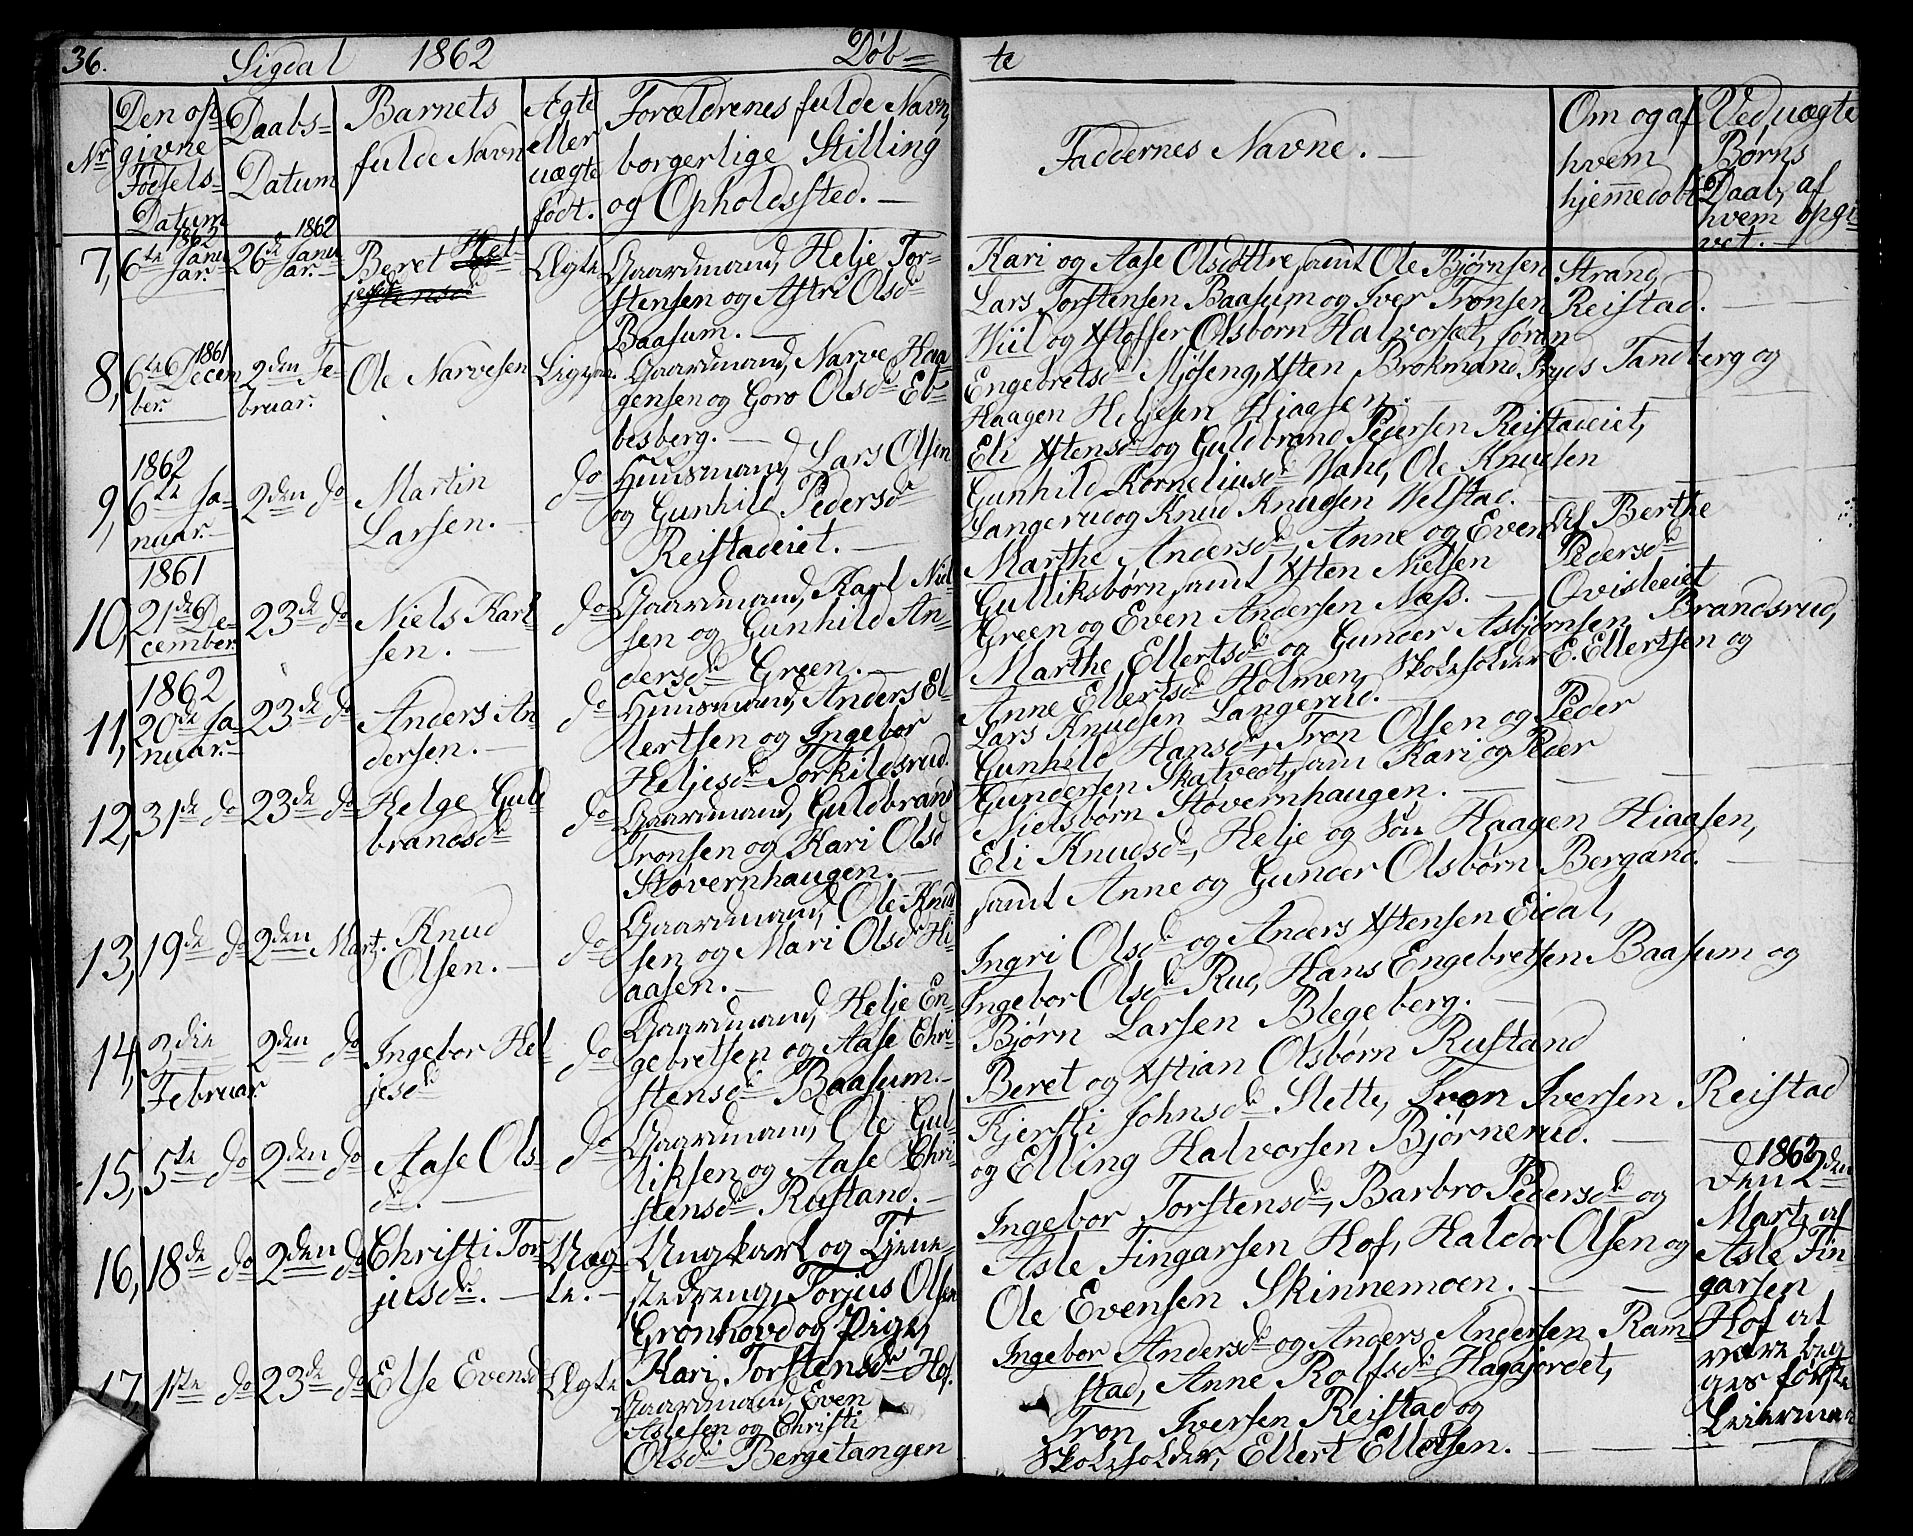 36. Sigdal 1862 Døb= te
Nr
Den op=
givne
Fødsels=
Datum
Daabs=
Datum
Barnets
fulde Navn
Ægte
eller
uægte
født.
Forældrenes fulde Navn,
borgerlige Stilling
og Opholdssted. —
Faddernes Navne. —
Om og af
hvem
hjemmedøbt
Ved uægte
Børns
Daab, af
hvem opgi=
vet. —
7, 1862 6te Janu
ar.
1862 26de Janu
ar.
Beret Hel=
jesdr
Ægte
Gaardmand, Helje Tor=
stensen og Astri Olsdr
Baasum. —
Kari og Aase Olsdøttre, samt Ole Bjørnsen Strand,
Lars Torstensen Baasum og Iver Tronsen Reistad. —
8, 1861 6te Decem
ber.
2den Fe=
bruar.
Ole Narvesen
Gaardmand, Narve Haa=
gensen og Goro Olsdr Eb=
besberg. —
Hiil og Xstoffer Olsbørn Halvorset, Jøran
Engebretsdr Mjøseng, Xsten Brokmand Pryds Tandberg og
Haagen Heljesen Hiaasen.
9, 1862
6te Ja=
nuar.
2den do
Martin
Larsen. —
do
Huusmand, Lars Olsen
og Gunhild Pedersdr
Reistadeiet. —
Eli Xstensdr og Guldbrand Pedersen Reistadeiet,
Gunhild Kornelinsdr Vahl, Ole Knudsen
Langerud og Knud Knudsen Velstad. —
10, 1861
21de De=
cember
23de do
Niels Karl=
sen. —
do
Gaardmand, Karl Niel=
sen og Gunhild An=
dersdr Green. —
Marthe Andersdr, Anne og Even
Gulliksbørn, samt Xsten Nielsen
Green og Even Andersen Næss. —
Af Berthe
Pedersdr
Qvisleeiet
11, 1862
20de Ja=
nuar.
23de do
Anders An=
dersen. —
do
Huusmand, Anders El=
lertsen og Ingebor
Heljesdr Torkildsrud.
Marthe Ellertsdr og Gunder Asbjørnsen Brandsrud,
Anne Ellertsdr Holmen, Skoleholder E. Ellertsen og
Lars Knudsen Langerud. —
12, 31de do
23de do
Helge Guld
brandsdr
do
Gaardmand, Guldbrand
Tronsen og Kari Olsd
Støvernhaugen. —
Gunhild Hansdr, Tron Olsen og Peder
Gundersen Skalvedt, samt Kari og Peder
Nielsbørn Støvernhaugen. —
13, 19de do
2den Mart.
Knud
Olsen. —
do
Gaardmand, Ole Knud
sen og Mari Olsdr Hi=
aasen. —
Eli Knudsdr, Helje og Søn Haagen Hiaasen,
samt Anne og Gunder Olsbørn Bergand. —
14, 3die
Februar
2den do
Ingebor Hel=
jesdr
do
Gaardmand, Helje En=
gebretsen og Aase Chri=
stensdr Baasum. —
Ingri Olsdr og Anders Xstensen Eidal,
Ingebor Olsdr Rud, Hans Engebretsen Baasum og
Bjørn Larsen Blegeberg. —
15, 5te do
2den do
Aase Ols=
dr. —
do
Gaardmand, Ole Gul=
liksen og Aase Chri=
stensdr Rustand. —
Beret og Xstian Olsbørn Rustand
Kjersti Johnsdr Slette, Tron Iversen Reistad
og Elling Halvorsen Bjørnerud. —
16, 18de do
2den do
Christi Tor
jusdr. —
Uæg=
te. —
Ungkarl og Tjene=
stedreng, Torjus Olsen
Grønhovd og Pige,
Kari Torstensdr Hof.
Ingebor Torstensdr, Barbro Pedersdr og
Asle Fingarsen Hof, Haldor Olsen og
Ole Evensen Skinnemoen. —
1862
den 2den
Mart, af
Asle Fin=
garsen
Hof at
være beg
ges første
Leiermaal
17, 1ste do
23de do
Else Evensd
Ægte
Gaardmand, Even
Aslesen og Christi
Olsdr Bergetangen
Ingebor Andersdr og Anders Andersen Ram=
stad, Anne Rolfsdr Hagajordet,
Tron Iversen Reistad og
Skoleholder, Ellert Ellefsen. —